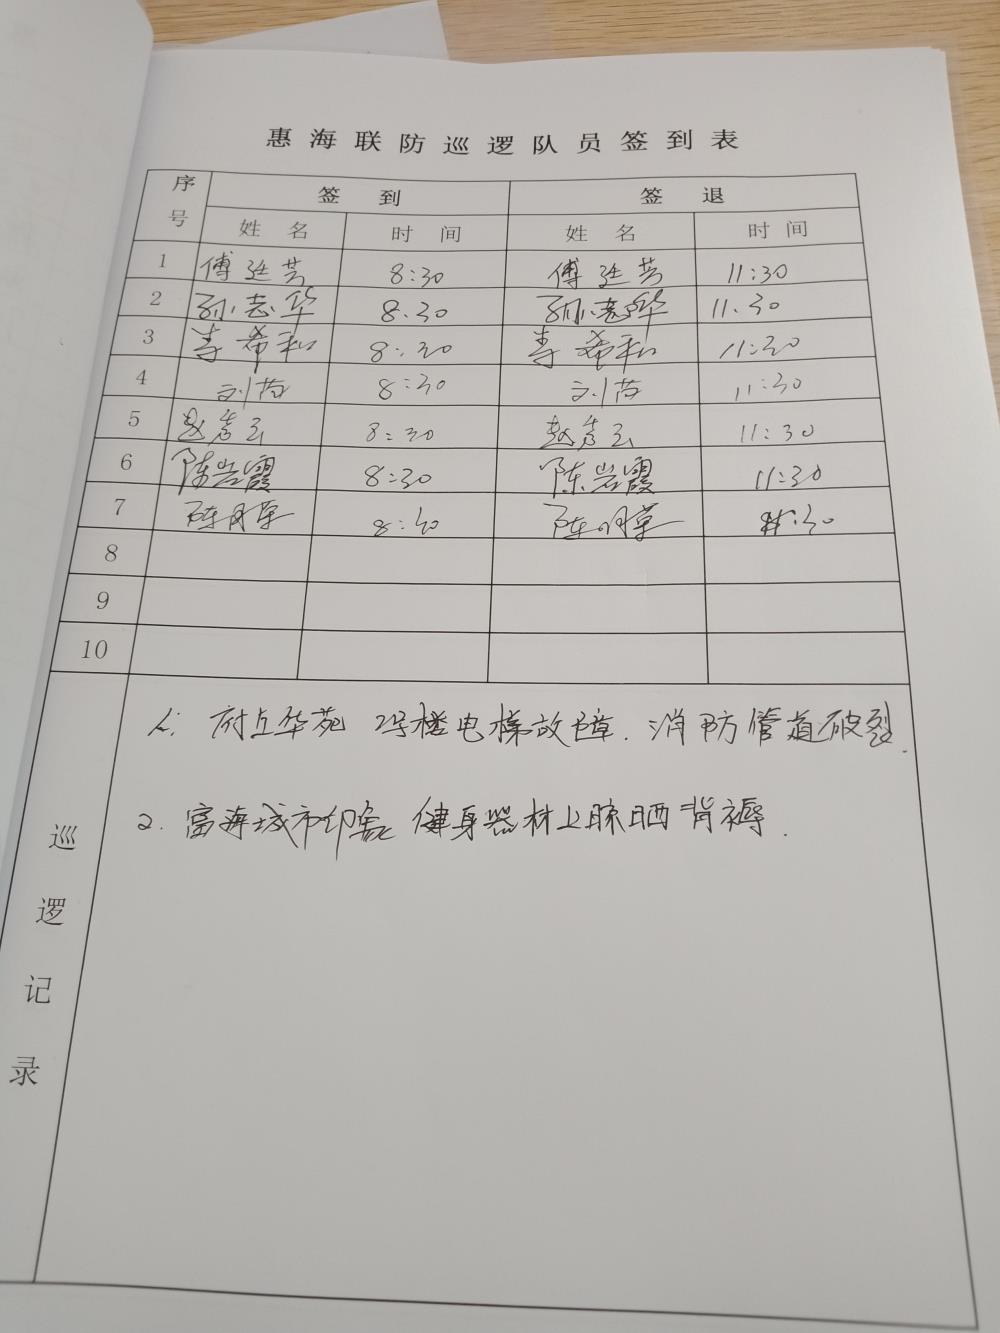 惠海联防巡逻队员签到表
序号 签到 签退
姓名 时间 姓名 时间
1 傅延芸 8:30 傅延芸 11:30
2 孙志华 8.30 孙志华 11.30
3 李希和 8:30 李希和 11:30
4 刘芮 8:30 刘芮 11:30
5 赵秀云 8:30 赵秀云 11:30
6 陈岩霞 8:30 陈岩霞 11:30
7 8:30 11:30
8
9
10
巡逻记录
1. 府上华苑 2号楼电梯故障. 消防管道破裂.
2. 富海城市印象 健身器材上晾晒背褥.